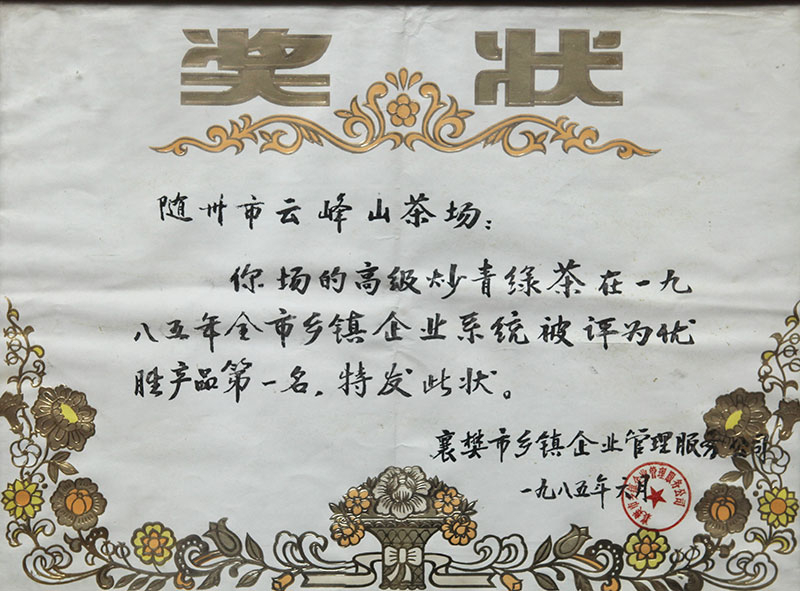 奖状
随州市云峰山茶场：
你场的高级炒青绿茶在一九
八五年全市乡镇企业系统被评为优
胜产品第一名，特发此状。
襄樊市乡镇企业管理服务公司
一九八五年六月